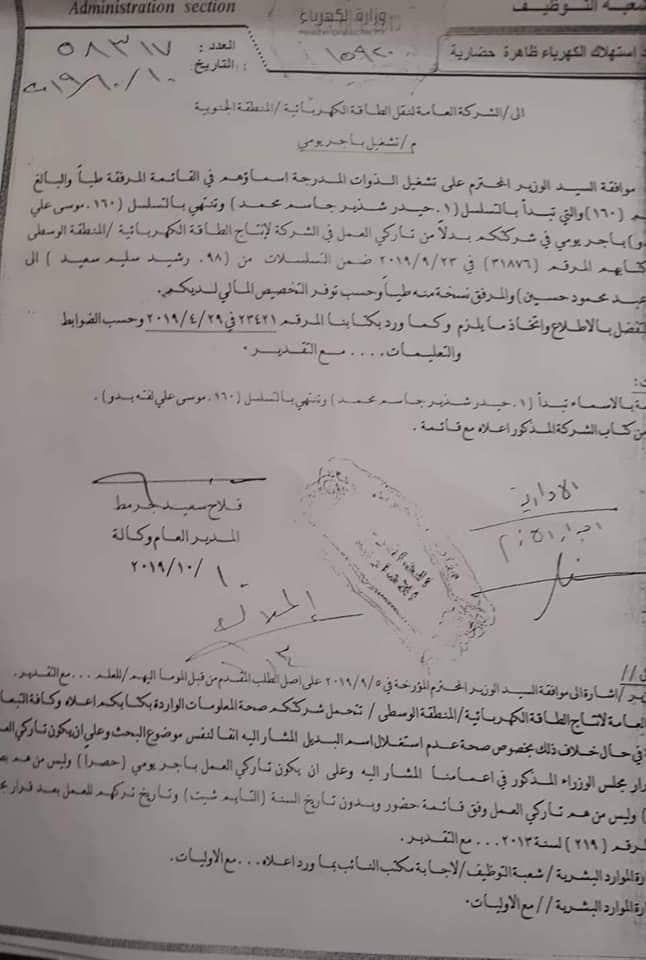 Administration section
شعبة التوظيف
وزارة الكهرباء
العدد : ٥٨٣١٧
١٥٩٢٠
د استهلاك الكهرباء ظاهرة حضارية
التاريخ : ٢٠١٩/١٠/١٠
الى/ الشركة العامة لنقل الطاقة الكهربائية / المنطقة الجنوبية
م/ تشغيل باجر يومي
موافقة السيد الوزير المحترم على تشغيل الذوات المدرجة اسماؤهم في القائمة المرفقة طياً والبالغ
م (١٦٠) والتي تبدأ بالتسلسل (١. حيدر شذير جاسم محمد) وتنتهي بالتسلسل (١٦٠. موسى علي
دو) باجر يومي في شركتكم بدلاً من تاركي العمل في الشركة لإنتاج الطاقة الكهربائية / المنطقة الوسطى
كتابهم المرقم (٣١٨٧٦) في ٢٠١٩/٩/٢٣ ضمن التسلسلات من (٩٨. رشيد سليم سعيد) الى
عيد محمود حسين) والمرفق نسخة منه طياً وحسب توفر التخصيص المالي لديكم.
تفضل بالاطلاع واتخاذ ما يلزم وكما ورد بكتابنا المرقم ٢٣٤٢١ في ٢٠١٩/٤/٢٩ وحسب الضوابط
والتعليمات .... مع التقدير.
ة بالاسماء تبدأ (١. حيدر شذير جاسم محمد) وتنتهي بالتسلسل (١٦٠. موسى علي لفته بدو).
من كتاب الشركة المذكور اعلاه مع قائمة.
الادارية
فلاح سعيد جرمط
المدير العام وكالة
٢٠١٩/١٠/١٠
الملاك
ير/ اشارة الى موافقة السيد الوزير المحترم المؤرخة في ٢٠١٩/٩/٥ على اصل الطلب المقدم من قبل الموما اليهم/ للعلم ... مع التقدير.
العامة لانتاج الطاقة الكهربائية / المنطقة الوسطى / تتحمل شركتكم صحة المعلومات الواردة بكتابكم اعلاه وكافة التبعا
ة في حال خلاف ذلك بخصوص صحة عدم استغلال اسم البديل المشار اليه انفا لنفس موضوع البحث وعلى ان يكون تاركي الع
رار مجلس الوزراء المذكور في اعمامنا المشار اليه وعلى ان يكون تاركي العمل باجر يومي (حصرا) وليس من هم بعد
) وليس من هم تاركي العمل وفق قائمة حضور وبدون تاريخ السنة (التايم شيت) وتاريخ تركهم للعمل بعد قرار مج
لمرقم (٢١٩) لسنة ٢٠١٣ ... مع التقدير.
رة الموارد البشرية / شعبة التوظيف / لاجابة مكتب النائب بما ورد اعلاه ... مع الاوليات.
رة الموارد البشرية // مع الاوليات.